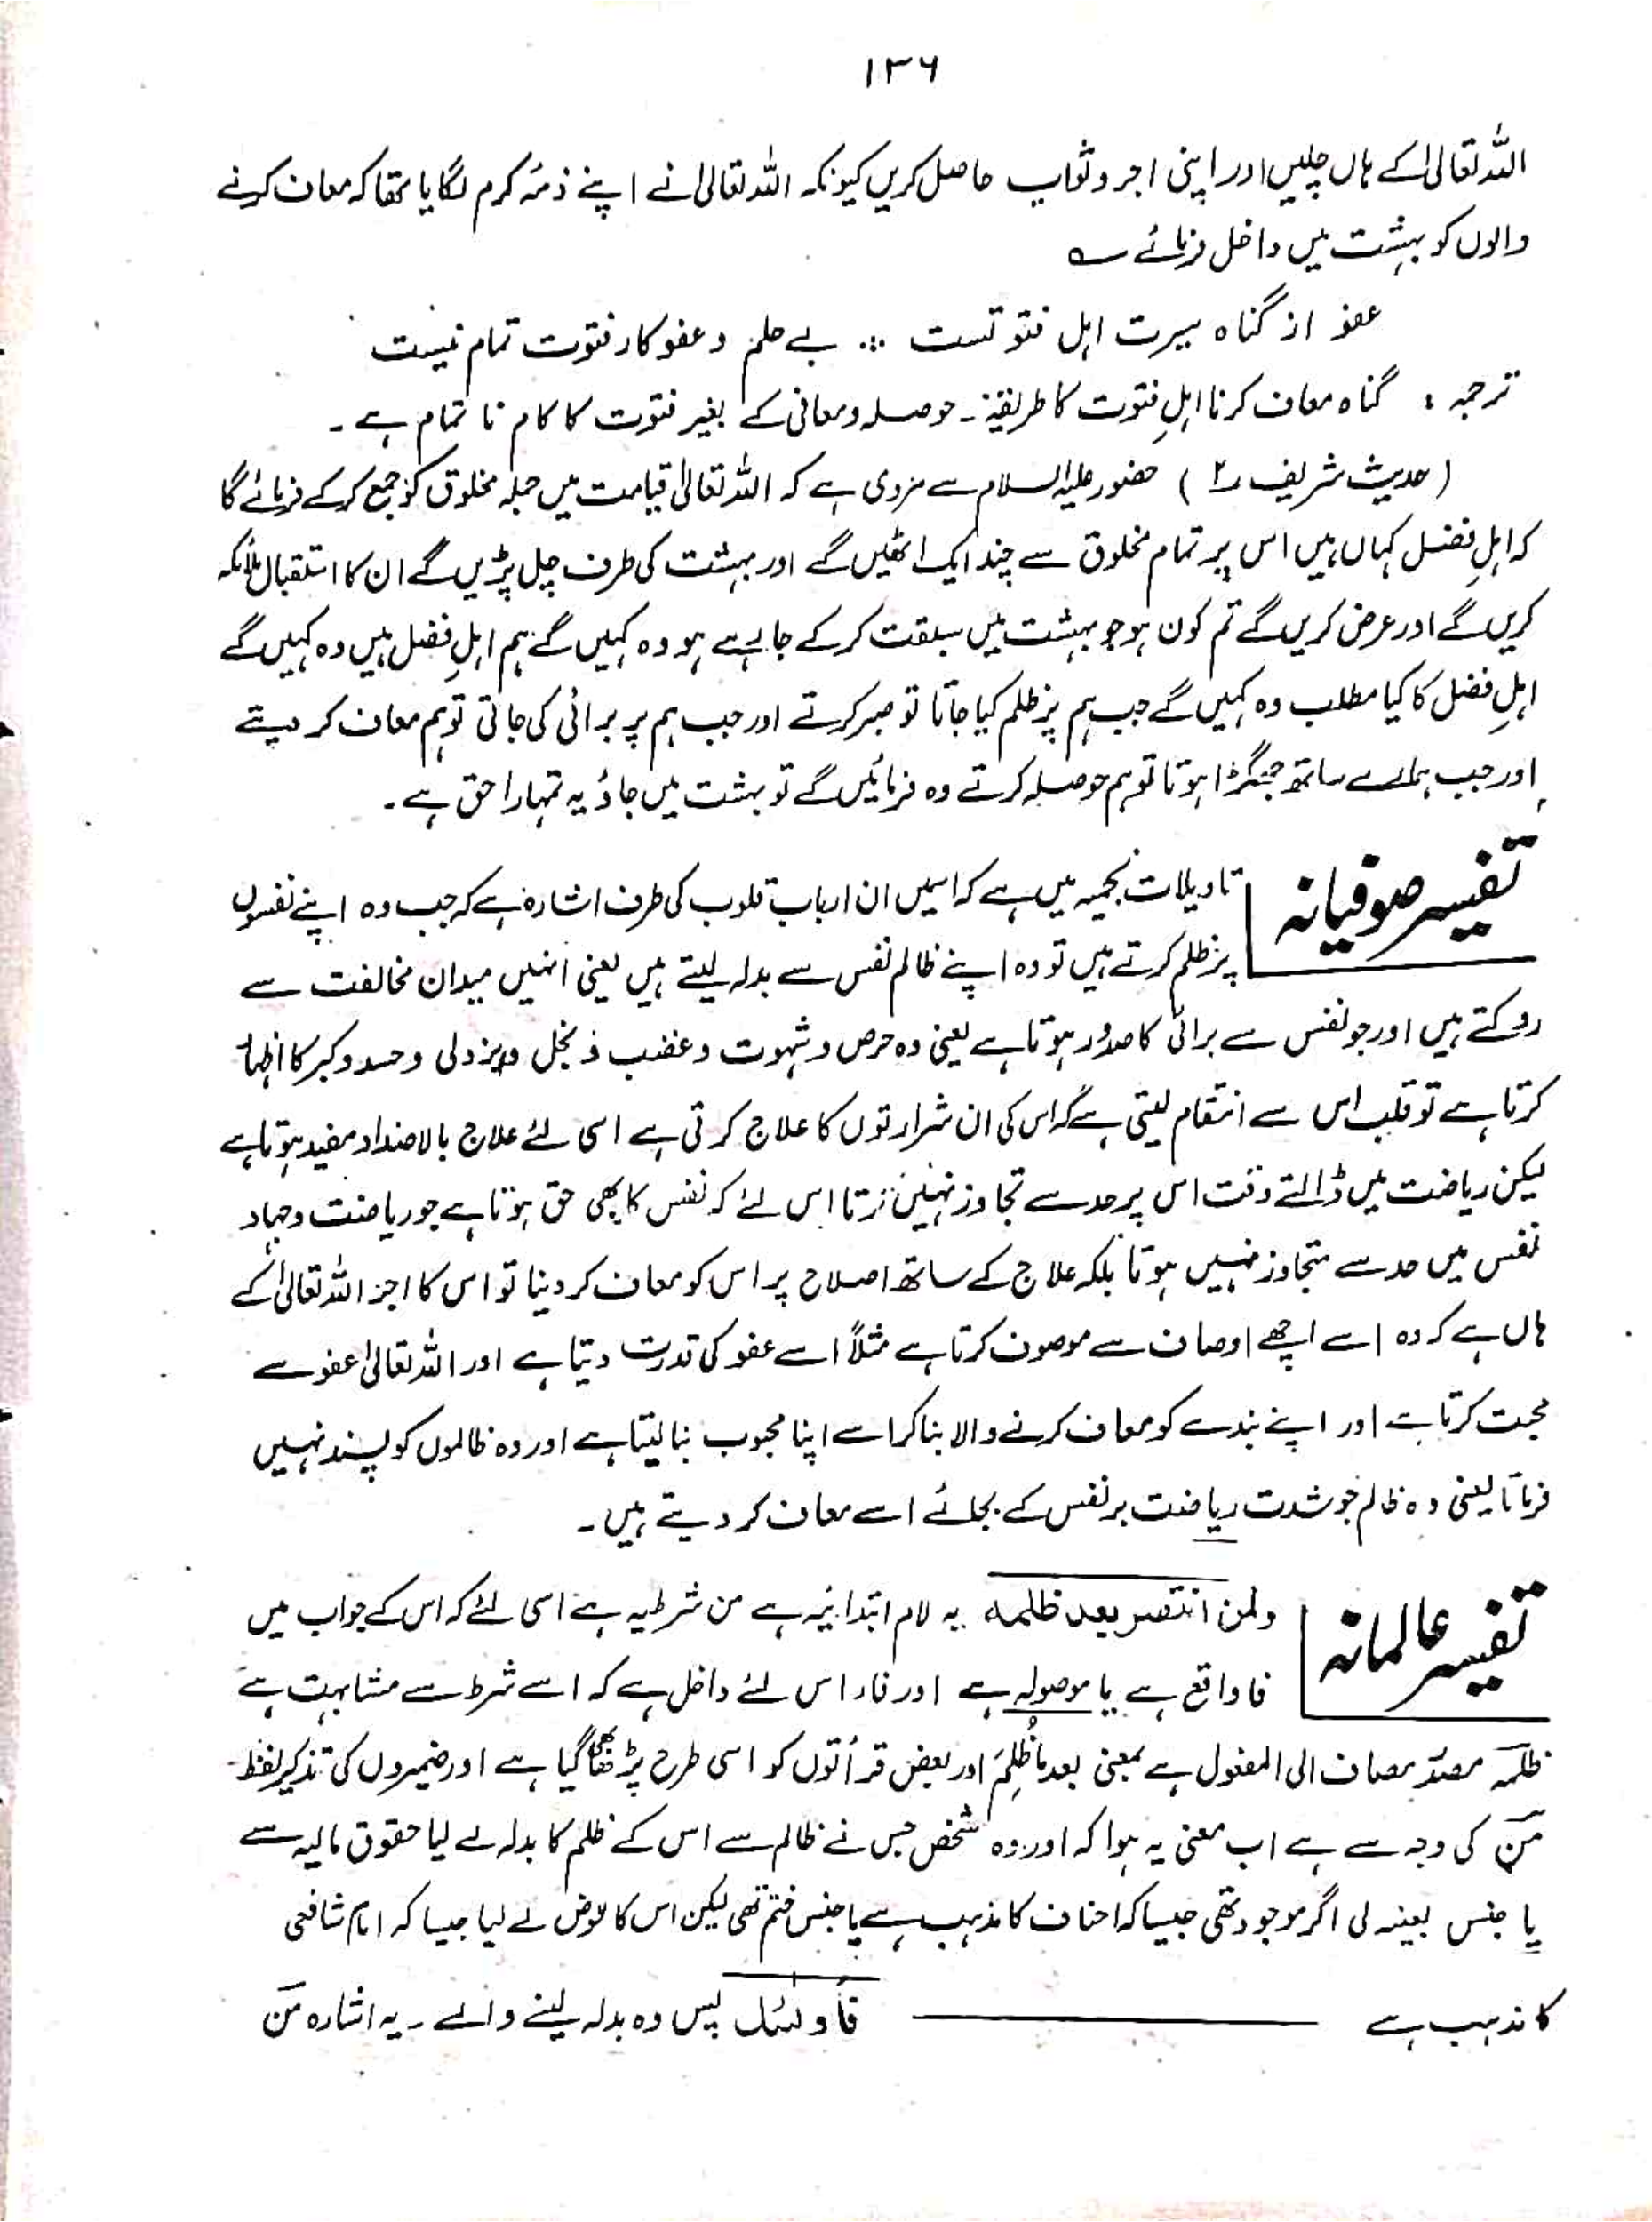 ۱۳۶
اللہ تعالیٰ کے ہاں چلیں اور اپنی اجر و ثواب حاصل کریں کیونکہ اللہ تعالیٰ نے اپنے ذمۂ کرم لگایا تھا کہ معاف کرنے
والوں کو بہشت میں داخل فرمائے ؎
عفو از گناہ سیرت اہل فتوتست ∴ بے حلم و عفو کار فتوت تمام نیست
ترجمہ : گناہ معاف کرنا اہلِ فتوت کا طریقہ ۔ حوصلہ و معافی کے بغیر فتوت کا کام نا تمام ہے ۔
(حدیث شریف ۲) حضور علیہ السلام سے مروی ہے کہ اللہ تعالیٰ قیامت میں جملہ مخلوق کو جمع کر کے فرمائے گا
کہ اہلِ فضل کہاں ہیں اس پر تمام مخلوق سے چند ایک اٹھیں گے اور بہشت کی طرف چل پڑیں گے ان کا استقبال ملائکہ
کریں گے اور عرض کریں گے تم کون ہو جو بہشت میں سبقت کر کے جا رہے ہو وہ کہیں گے ہم اہلِ فضل ہیں وہ کہیں گے
اہلِ فضل کا کیا مطلب وہ کہیں گے جب ہم پر ظلم کیا جاتا تو صبر کرتے اور جب ہم پر برائی کی جاتی تو ہم معاف کر دیتے
اور جب ہمارے ساتھ جھگڑا ہوتا تو ہم حوصلہ کرتے وہ فرمائیں گے تو بہشت میں جاؤ یہ تمہارا حق ہے ۔
تفسیر صوفیانہ
تاویلات نجمیہ میں ہے کہ اسمیں ان ارباب قلوب کی طرف اشارہ ہے کہ جب وہ اپنے نفسوں
پر ظلم کرتے ہیں تو وہ اپنے ظالم نفس سے بدلہ لیتے ہیں یعنی انہیں میدان مخالفت سے
روکتے ہیں اور جو نفس سے برائی کا صدور ہوتا ہے یعنی وہ حرص و شہوت و غضب و بخل و بزدلی و حسد و کبر کا اظہار
کرتا ہے تو قلب اس سے انتقام لیتی ہے کہ اس کی ان شرارتوں کا علاج کرتی ہے اسی لئے علاج بالاضداد مفید ہوتا ہے
لیکن ریاضت میں ڈالتے وقت اس پر حد سے تجاوز نہیں کرتا اس لئے کہ نفس کا بھی حق ہوتا ہے جو ریاضت و جہاد
نفس میں حد سے متجاوز نہیں ہوتا بلکہ علاج کے ساتھ اصلاح پر اس کو معاف کر دینا تو اس کا اجر اللہ تعالیٰ کے
ہاں ہے کہ وہ اسے اچھے اوصاف سے موصوف کرتا ہے مثلاً اسے عفو کی قدرت دیتا ہے اور اللہ تعالیٰ عفو سے
محبت کرتا ہے اور اپنے بندے کو معاف کرنے والا بنا کر اسے اپنا محبوب بنا لیتا ہے اور وہ ظالموں کو پسند نہیں
فرماتا یعنی وہ ظالم جو شدت ریاضت بر نفس کے بجائے اسے معاف کر دیتے ہیں ۔
تفسیر عالمانہ
ولمن انتصر بعد ظلمہ یہ لام ابتدائیہ ہے من شرطیہ ہے اسی لئے کہ اس کے جواب میں
فا واقع ہے یا موصولہ ہے اور فاء اس لئے داخل ہے کہ اسے شرط سے مشابہت ہے
ظلمہ مصدر مضاف الی المفعول ہے بمعنی بعد ما ظُلِمَ اور بعض قرأتوں کو اسی طرح پڑھا گیا ہے اور ضمیروں کی تذکیر لفظ
مَن کی وجہ سے ہے اب معنی یہ ہوا کہ اور وہ شخص جس نے ظالم سے اس کے ظلم کا بدلہ لے لیا حقوق مالیہ سے
یا جنس بعینہ لی اگر موجود تھی جیسا کہ احناف کا مذہب ہے یا جنس ختم تھی لیکن اس کا عوض لے لیا جیسا کہ امام شافعی
کا مذہب ہے ــــــــــ فأولئک پس وہ بدلہ لینے والے ۔ یہ اشارہ مَن